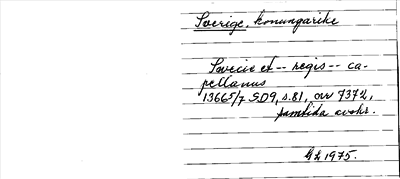 Sverige, konungarike
Svecie et -- regis -- ca-
pellanus
1366 5/7 SD9, s.81, or 7372,
samtida avskr.
1975.